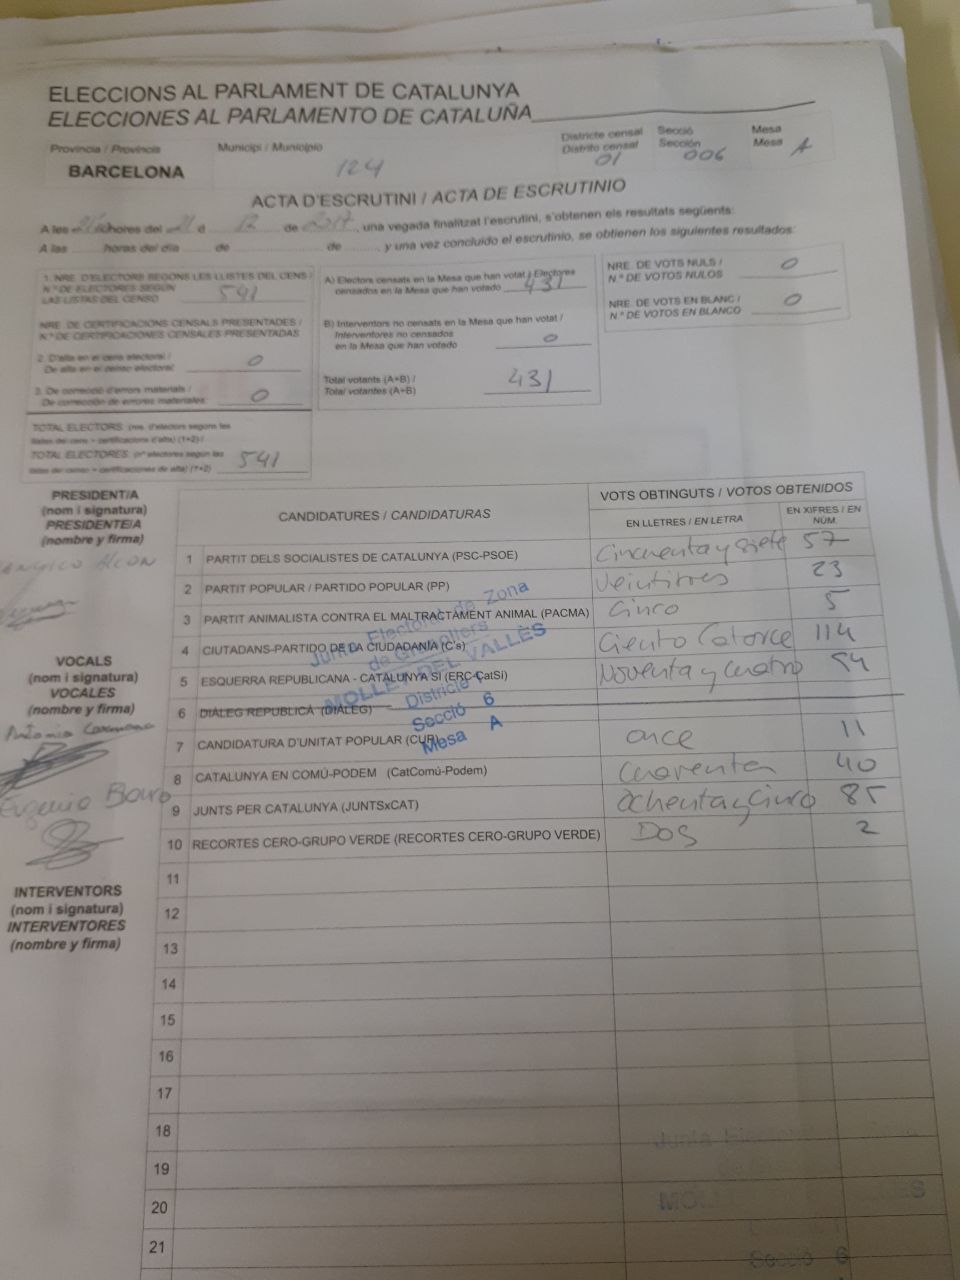 ELECCIONS AL PARLAMENT DE CATALUNYA
ELECCIONES AL PARLAMENTO DE CATALUÑA
Provincia / Provincia
BARCELONA
Municipi / Municipio
124
Districte censal
Distrito censal
01
Secció
Sección
006
Mesa
Mesa
A
ACTA D'ESCRUTINI / ACTA DE ESCRUTINIO
A les 21 hores del 21 d 12 de 2017, una vegada finalitzat l'escrutini, s'obtenen els resultats següents:
A las horas del día de de , y una vez concluido el escrutinio, se obtienen los siguientes resultados:
1. NRE. D'ELECTORS SEGONS LES LLISTES DEL CENS /
N.º DE ELECTORES SEGÚN
LAS LISTAS DEL CENSO 541
NRE. DE CERTIFICACIONS CENSALS PRESENTADES /
N.º DE CERTIFICACIONES CENSALES PRESENTADAS
2. D'alta en el cens electoral /
De alta en el censo electoral 0
3. De correcció d'errors materials /
De corrección de errores materiales 0
TOTAL ELECTORS: (nre. d'electors segons les
llistes del cens + certificacions d'alta) (1+2) /
TOTAL ELECTORES: (nº electores según las
listas del censo + certificaciones de alta) (1+2) 541
A) Electors censats en la Mesa que han votat / Electores
censados en la Mesa que han votado 431
B) Interventors no censats en la Mesa que han votat /
Interventores no censados
en la Mesa que han votado 0
Total votants (A+B) /
Total votantes (A+B) 431
NRE. DE VOTS NULS /
N.º DE VOTOS NULOS 0
NRE. DE VOTS EN BLANC /
N.º DE VOTOS EN BLANCO 0
PRESIDENT/A
(nom i signatura)
PRESIDENTE/A
(nombre y firma)
VOCALS
(nom i signatura)
VOCALES
(nombre y firma)
Antonia Carmona
Eugenio
INTERVENTORS
(nom i signatura)
INTERVENTORES
(nombre y firma)
CANDIDATURES / CANDIDATURAS
VOTS OBTINGUTS / VOTOS OBTENIDOS
EN LLETRES / EN LETRA
EN XIFRES / EN NÚM.
1 PARTIT DELS SOCIALISTES DE CATALUNYA (PSC-PSOE) Cincuenta y siete 57
2 PARTIT POPULAR / PARTIDO POPULAR (PP) Veintitres 23
3 PARTIT ANIMALISTA CONTRA EL MALTRACTAMENT ANIMAL (PACMA) Cinco 5
4 CIUTADANS-PARTIDO DE LA CIUDADANÍA (C's) Ciento Catorce 114
5 ESQUERRA REPUBLICANA - CATALUNYA SÍ (ERC-CatSí) Noventa y cuatro 94
6 DIÀLEG REPUBLICÀ (DIÀLEG)
7 CANDIDATURA D'UNITAT POPULAR (CUP) once 11
8 CATALUNYA EN COMÚ-PODEM (CatComú-Podem) Cuarenta 40
9 JUNTS PER CATALUNYA (JUNTSxCAT) Ochenta y Cinco 85
10 RECORTES CERO-GRUPO VERDE (RECORTES CERO-GRUPO VERDE) DOS 2
11
12
13
14
15
16
17
18
19
20
21
Junta Electoral de Zona
de Granollers
MOLLET DEL VALLÈS
Districte 1
Secció 6
Mesa A
Secció 6